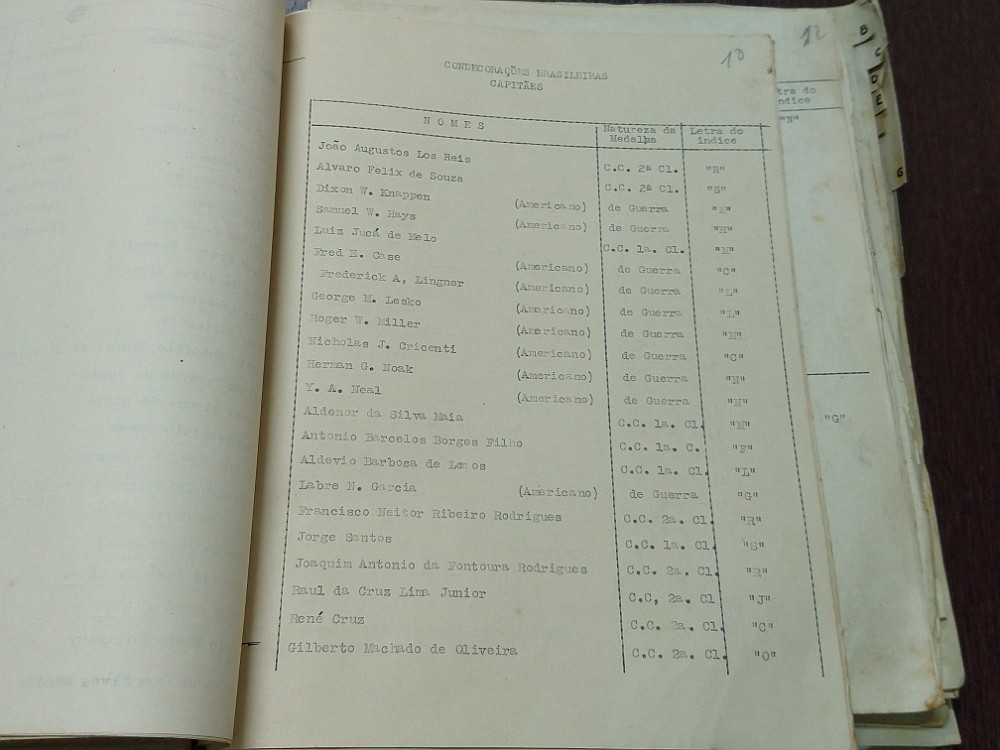 10
12
CONDECORAÇÕES BRASILEIRAS
CAPITÃES
NOMES Natureza da Medalha Letra do índice
João Augustos Los Reis C.C. 2ª Cl. "R"
Alvaro Felix de Souza C.C. 2ª Cl. "S"
Dixon W. Knappen (Americano) de Guerra "K"
Samuel W. Hays (Americano) de Guerra "H"
Luiz Jucá de Melo C.C. 1a. Cl. "M"
Fred E. Case (Americano) de Guerra "C"
Frederick A, Lingner (Americano) de Guerra "L"
George M. Lesko (Americano) de Guerra "L"
Roger W. Miller (Americano) de Guerra "M"
Nicholas J. Cricenti (Americano) de Guerra "C"
Herman G. Noak (Americano) de Guerra "N"
Y. A. Neal (Americano) de Guerra "N"
Aldenor da Silva Maia C.C. 1a. Cl. "M"
Antonio Barcelos Borges Filho C.C. 1a. C. "F"
Aldevio Barbosa de Lemos C.C. 1a. Cl. "L"
Labre N. Garcia (Americano) de Guerra "G"
Francisco Neitor Ribeiro Rodrigues C.C. 2a. Cl. "R"
Jorge Santos C.C. 1a. Cl. "S"
Joaquim Antonio da Fontoura Rodrigues C.C. 2a. Cl. "R"
Raul da Cruz Lima Junior C.C, 2a. Cl "J"
René Cruz C.C. 2a. Cl. "C"
Gilberto Machado de Oliveira C.C. 2a. Cl. "O"
tra do
ndice
"K"
"G"
B
C
D
E
G